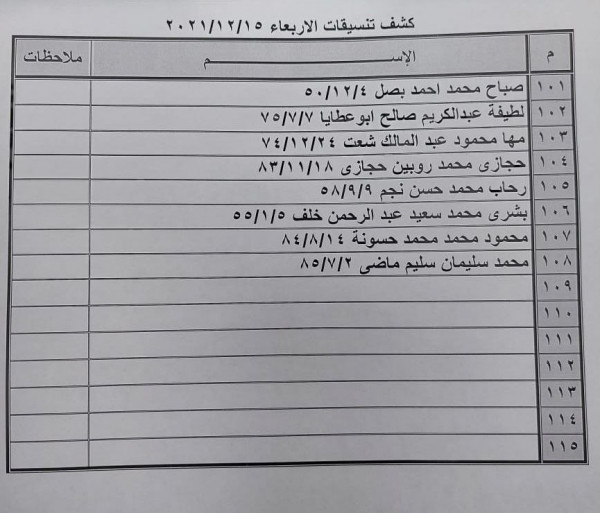 كشف تنسيقات الاربعاء ٢٠٢١/١٢/١٥
م الإســـــم ملاحظات
١٠١ صباح محمد احمد بصل ٥٠/١٢/٤
١٠٢ لطيفة عبدالكريم صالح ابوعطايا ٧٥/٧/٧
١٠٣ مها محمود عبد المالك شعت ٧٤/١٢/٢٤
١٠٤ حجازى محمد روبين حجازى ٨٣/١١/١٨
١٠٥ رحاب محمد حسن نجم ٥٨/٩/٩
١٠٦ بشرى محمد سعيد عبد الرحمن خلف ٥٥/١/٥
١٠٧ محمود محمد محمد حسونة ٨٤/٨/١٤
١٠٨ محمد سليمان سليم ماضى ٨٥/٧/٢
١٠٩
١١٠
١١١
١١٢
١١٣
١١٤
١١٥